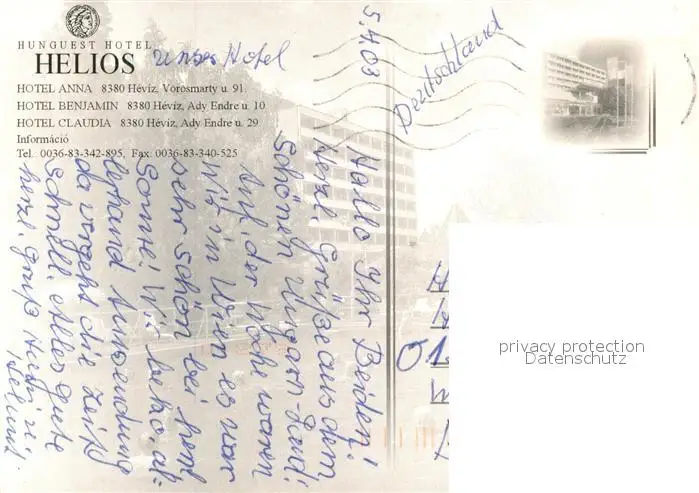 HUNGUEST HOTEL
HELIOS
unser Hotel
HOTEL ANNA 8380 Hévíz, Vörösmarty u. 91.
HOTEL BENJAMIN 8380 Hévíz, Ady Endre u. 10.
HOTEL CLAUDIA 8380 Hévíz, Ady Endre u. 29.
Információ
Tel.: 0036-83-342-895, Fax: 0036-83-340-525
5.4.03
Deutschland
Hallo Ihr Beiden!
Herzl. Grüße aus dem
schönen Ungarn-Land!
Auf der Woche waren
Wir in Wien es war
sehr schön bei
Sonne! Wir
Anwendung
da vergeht die Zeit
schnell. Alles gute
herzl. Gruß
Helmut
01
privacy protection
Datenschutz